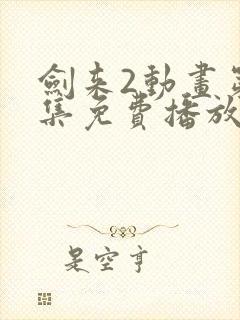 劍来2動畫第
集免費播放
是空亨